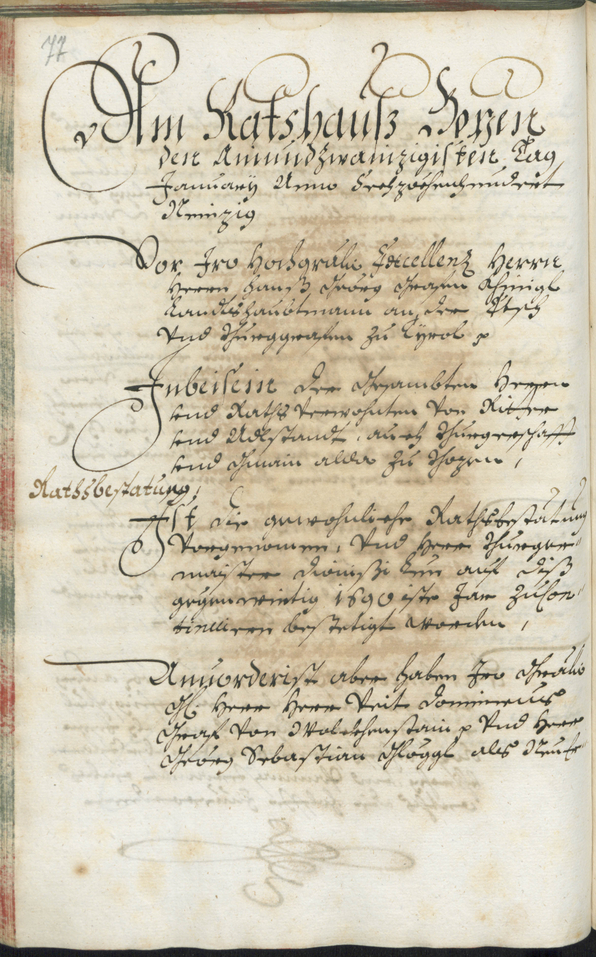 77
Am Ratshauß Bozen
den Ainundzwainzigisten Tag
January Anno Sechzechenhundert
Neinzig
Vor Iro Hochgräfl: Excellenz Herrn
Herrn Hannß Georg Grafen Khinigl
Landtshaubtmann an der Etsch
Vnd Burggrafen zu Tyrol p
Inbeisein der Gesambten Herren
und Raths Verwohnten Von Ritter
und Adlstandt, auch Burgerschafft
und Gmain alda zu Bozen,
Rathsbestatung,
Ist die gewohnliche Rathsbestatung
Vorgenomen, Vnd Herr Burger
maister auf diß
gegenwirtig 1690iste Jar zu Con
tinuieren bestetigt worden,
Anuorderist aber haben Iro Gräfl:
Gl: Herr Herr Veit Dominicus
Graf Von Wolckhenstain p Vnd Herr
Georg Sebastian Gloggl als Neue